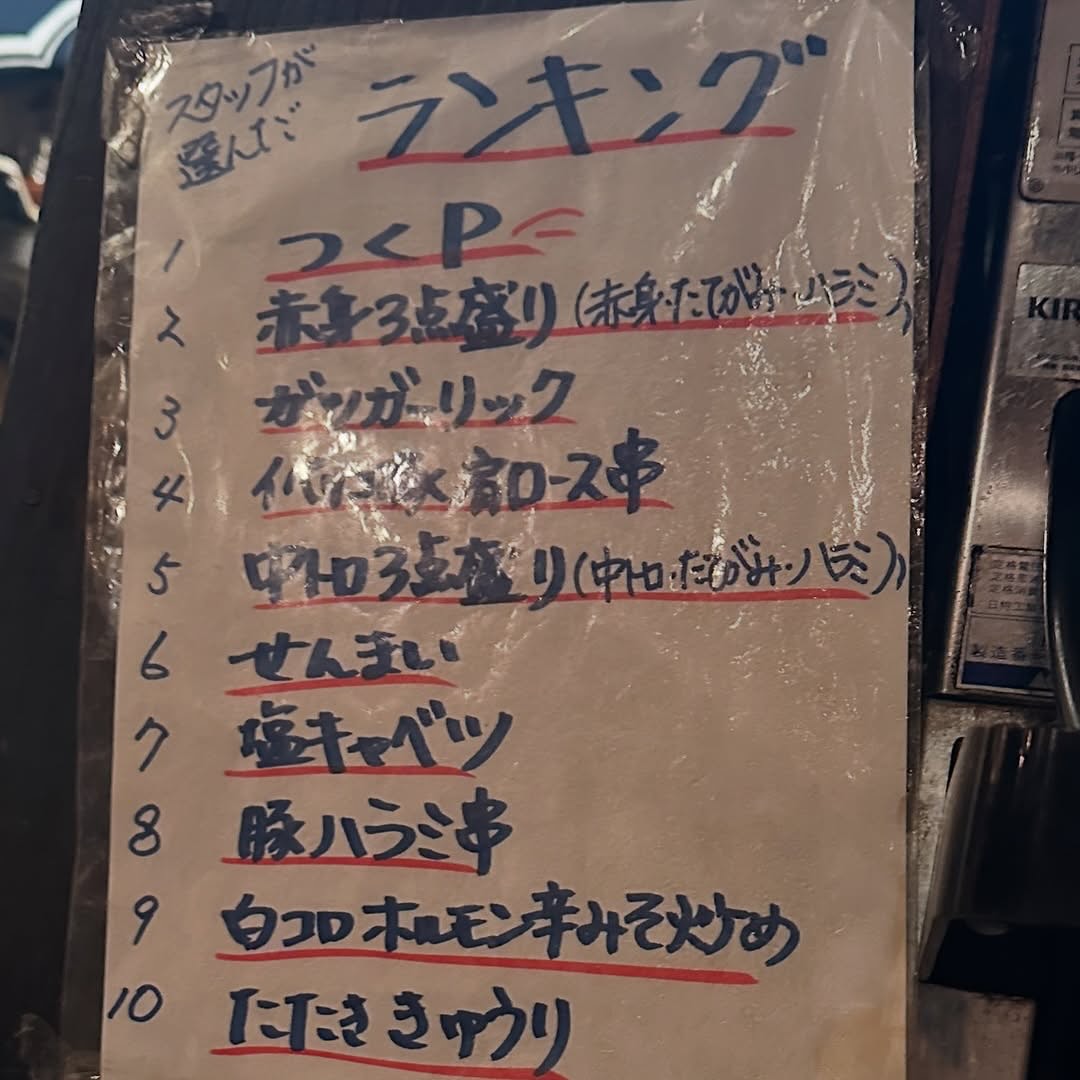 スタッフが
選んだ
ランキング
1 つくP
2 赤身3点盛り(赤身・たてがみ・ハラミ)
3 ガツガーリック
4 肩ロース串
5 中トロ3点盛り(中トロ・たてがみ・ハラミ)
6 せんまい
7 塩キャベツ
8 豚ハラミ串
9 白コロホルモン辛みそ炒め
10 たたききゅうり
KIR
製造番